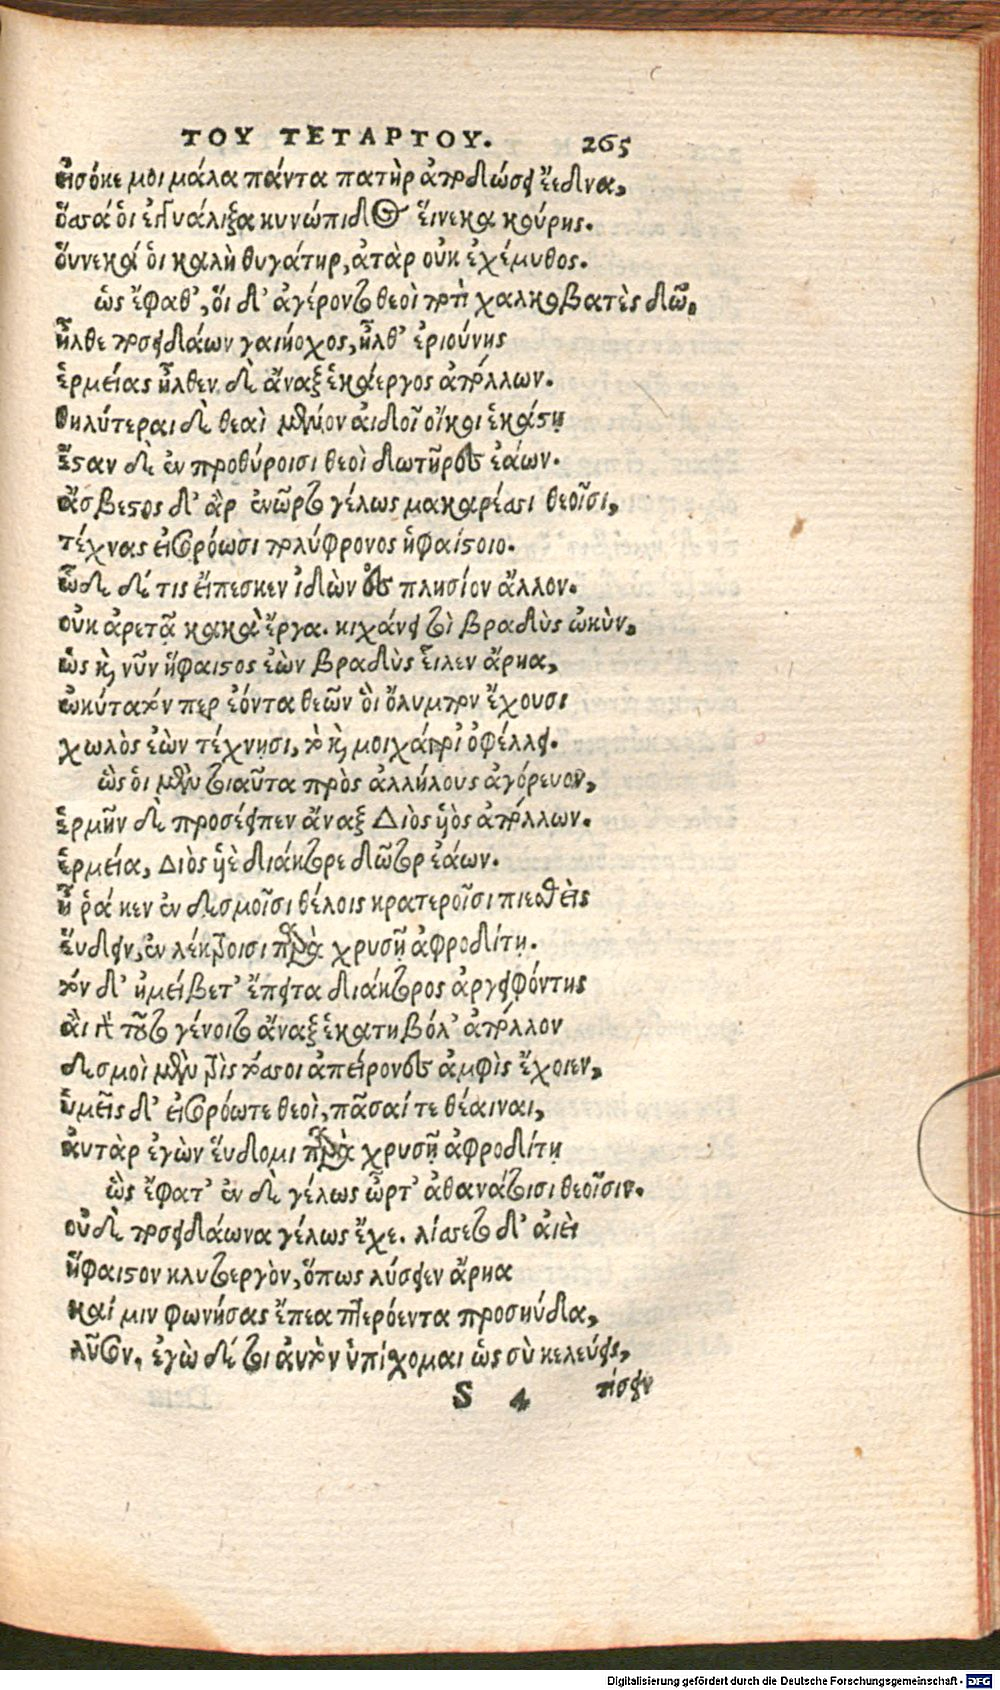 ΤΟΥ ΤΕΤΑΡΤΟΥ. 265
εἰσόκε μοι μάλα πάντα πατὴρ ἀποδώσει ἔεδνα,
ὅσσά ὁι ἐγγυάλιξα κυνώπιδος ἕινεκα κούρης.
ὅυνεκά ὁι καλὴ θυγάτηρ, ἀτὰρ οὐκ ἐχέμυθος.
ὡς ἔφαθ', ὅι δ' ἀγέροντο θεοὶ ποτὶ χαλκοβατὲς δῶ.
ἦλθε ποσειδάων γαιήοχος, ἦλθ' ἐριούνης
ἑρμείας ἦλθεν δὲ ἄναξ ἑκάεργος ἀπόλλων.
θηλύτεραι δὲ θεαὶ μένον αἰδοῖ οἴκοι ἑκάστη
ἔσταν δὲ ἐν προθύροισι θεοὶ δωτῆρες ἐάων.
ἄσβεστος δ' ἂρ ἐνῶρτο γέλως μακαρέσσι θεοῖσι,
τέχνας εἰσορόωσι πολύφρονος ἡφαίστοιο.
ὧδε δέ τις εἴπεσκεν ἰδὼν ἐς πλησίον ἄλλον.
οὐκ ἀρετᾷ κακὰ ἔργα. κιχάνει τοὶ βραδὺς ὠκὺν.
ὡς καὶ νῦν ἥφαιστος ἐὼν βραδὺς ἕιλεν ἄρηα,
ὠκύτατόν περ ἐόντα θεῶν ὃι ὄλυμπον ἔχουσι
χωλὸς ἐὼν τέχνῃσι, τὸ καὶ μοιχάγρι' ὀφέλλει.
ὣς ὁι μὲν τοιαῦτα πρὸς ἀλλήλους ἀγόρευον,
ἑρμῆν δὲ προσέειπεν ἄναξ Διὸς ὑὸς ἀπόλλων.
ἑρμεία, Διὸς ὑὲ διάκτορε δῶτορ ἐάων.
ἦ ῥά κεν ἐν δεσμοῖσι θέλοις κρατεροῖσι πιεσθεὶς
ἕυδειν, ἐν λέκτροισι παρὰ χρυσῇ ἀφροδίτῃ.
τὸν δ' ἠμείβετ' ἔπειτα διάκτορος ἀργειφόντης
ἂι γὰρ τοῦτο γένοιτο ἄναξ ἑκατηβόλ' ἀπόλλον
δεσμοὶ μὲν τρὶς τόσσοι ἀπείρονες ἀμφὶς ἔχοιεν,
ὑμεῖς δ' εἰσορόωτε θεοὶ, πᾶσαί τε θέαιναι,
ἀυτὰρ ἐγὼν ἕυδοιμι παρὰ χρυσῇ ἀφροδίτῃ
ὣς ἔφατ' ἐν δὲ γέλως ὦρτ' ἀθανάτοισι θεοῖσιν.
οὐδὲ ποσειδάωνα γέλως ἔχε. λίσσετο δ' ἀιεὶ
ἥφαιστον κλυτοεργὸν, ὅπως λύσειεν ἄρηα
καί μιν φωνήσας ἔπεα πτερόεντα προσηύδα,
λῦσον, ἐγὼ δέ τοι ἀυτὸν ὑπίχομαι ὡς σὺ κελεύεις,
S 4 τίσειν
Digitalisierung gefördert durch die Deutsche Forschungsgemeinschaft - DFG